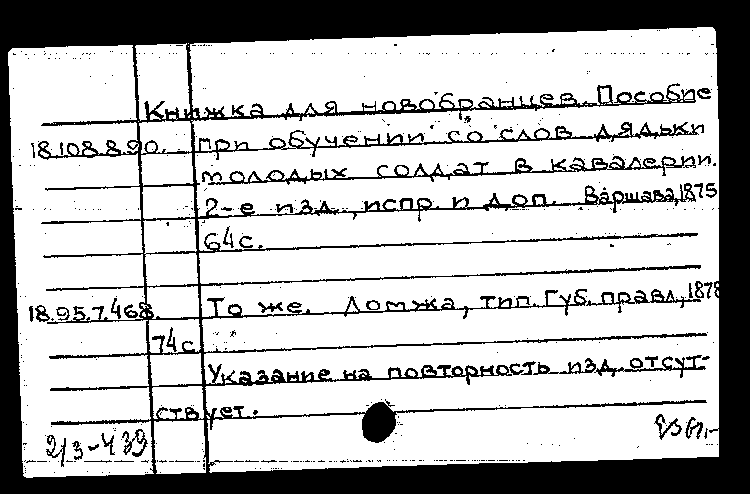 Книжка для новобранцев. Пособие
18.108.8.90. при обучении со слов дядьки
молодых солдат в кавалерии.
2-е изд., испр. и доп. Варшава, 1875
64с.
18.95.7.468. То же. Ломжа, тип. Губ. правл., 1878
74с.
Указание на повторность изд. отсут-
ствует.
2/3-439